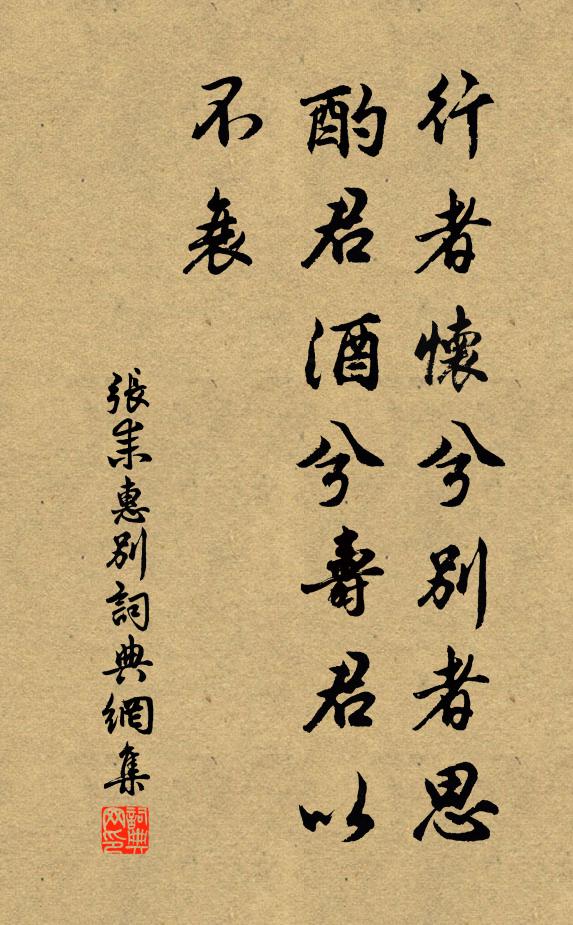 行者懷兮別者思
酌君酒兮壽君以
不衰
張耒惠別詞典網集
詞典网印